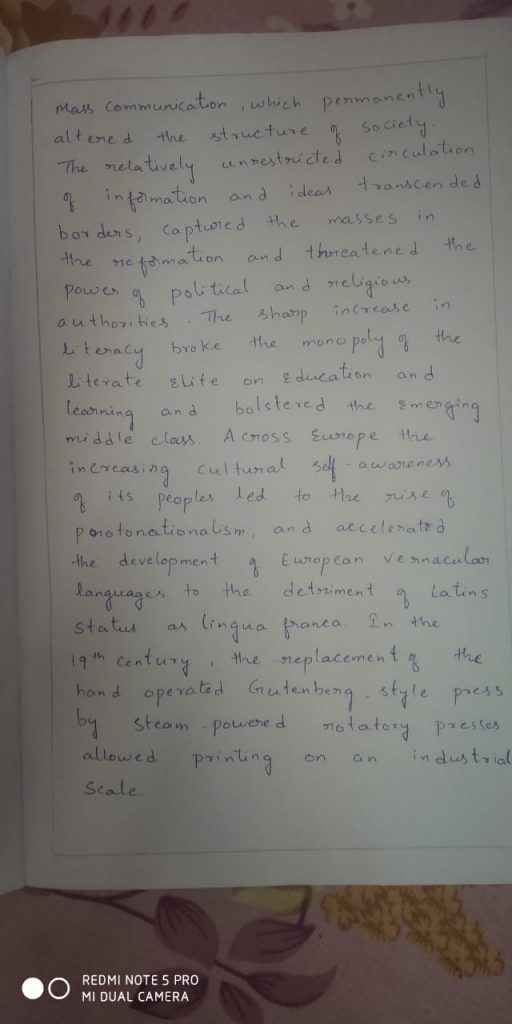 mass communication, which permanently
altered the structure of society.
The relatively unrestricted circulation
of information and ideas transcended
borders, captured the masses in
the reformation and threatened the
power of political and religious
authorities. The sharp increase in
literacy broke the monopoly of the
literate Elite on Education and
learning and bolstered the Emerging
middle class. Across Europe the
increasing cultural self-awareness
of its peoples led to the rise of
porotonationalism, and accelerated
the development of European vernacular
languages to the detriment of Latins
Status as lingua franca. In the
19th century, the replacement of the
hand operated Gutenberg-style press
by steam-powered rotatory presses
allowed printing on an industrial
Scale.
REDMI NOTE 5 PRO
MI DUAL CAMERA